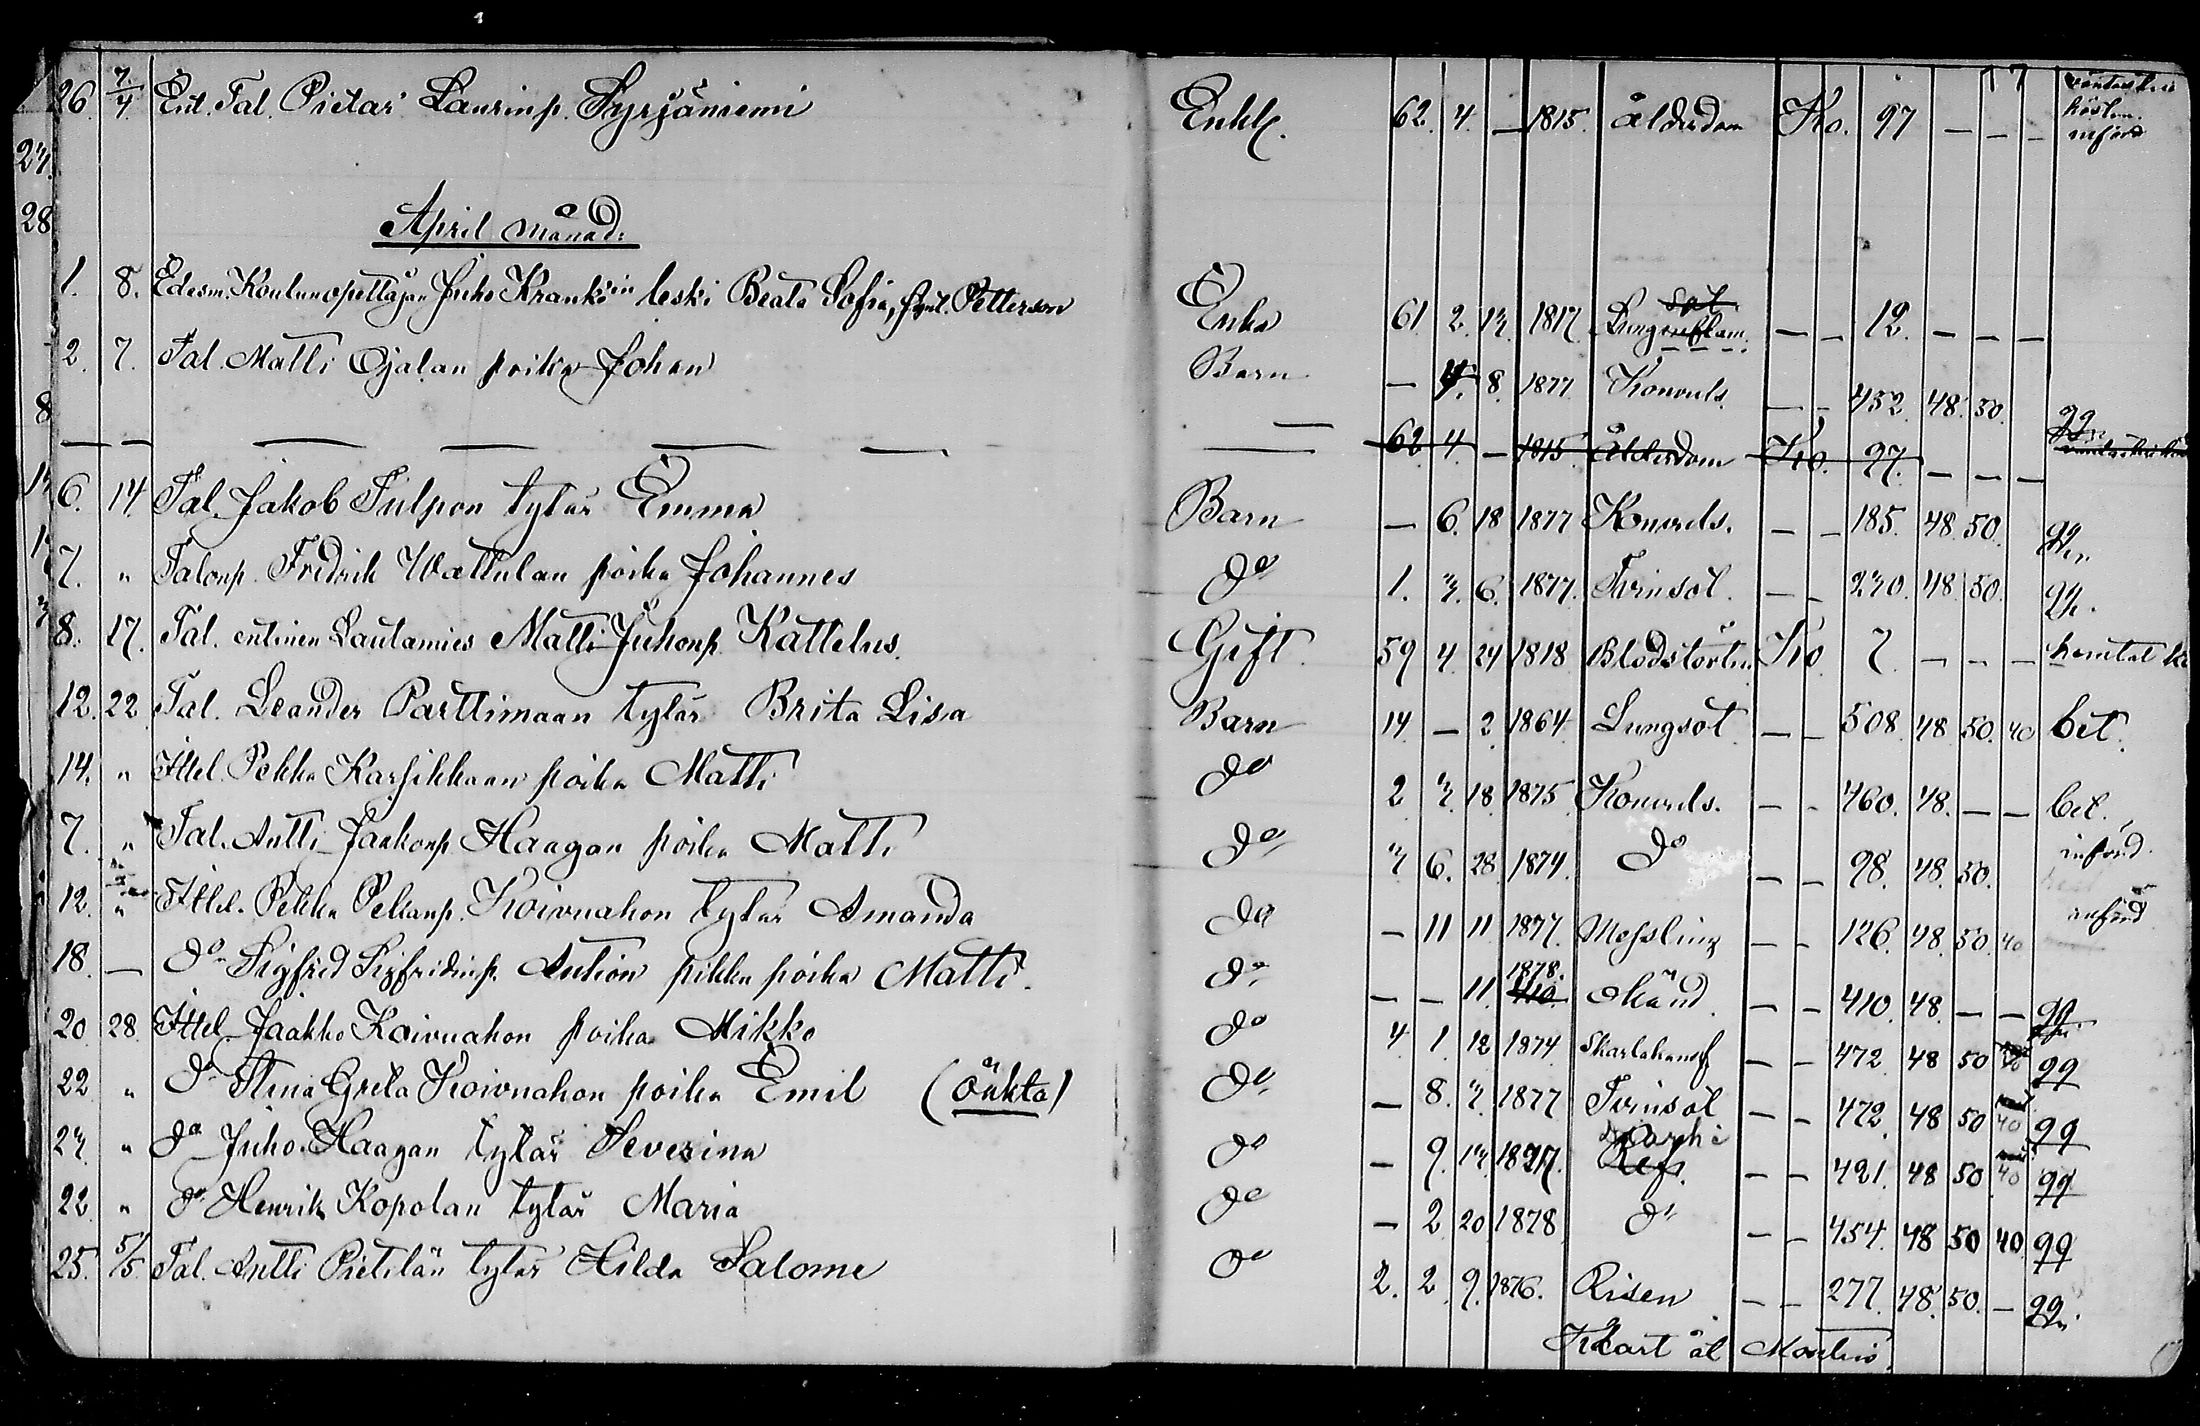 17
26. 7/4. Ent. Tal. Pietari Laurinp. Syrjäniemi Enkl. 62. 4. — 1815. ålderdom Ko. 97 — — — införd
27.
28
April månad:
1. 8. Edesm. Koulunopettajan Juho Krankin leski Beata Sofia, synt. Petterson Enka 61 2. 17. 1817. Lunginflam. — — 12. — — —
2. 7. Tal. Matti Ojalan poika Johan Barn — 4. 8. 1877 Konvuls. — — 452. 48. 50.
8 — — — — — — — 62 4 — 1815 Ålderdom Ko. 97. — — —
6. 14. Tal. Jakob Tulpon tytär Emma Barn — 6. 18 1877 Konvuls. — — 185. 48 50.
7. " Talonp. Fredrik Wattulan poika Johannes do 1. 7. 6. 1877. Tvinsot. — — 230. 48. 50.
8. 17. Tal. entinen Lautamies Matti Juhonp. Kattelus. Gift. 59 4 24 1818 Blodstörtn. Ko 7 — — —
12. 22 Tal. Leander Parttimaan tytär Brita Lisa Barn 14 — 2 1864 Lungsot — — 508. 48 50. 40 bet.
14. " Ittel. Pekka Karsikkaan poika Matti do 2 7. 18 1875 Konvuls. — — 460. 48. — — bet.
7. " Tal. Antti Jaakonp. Haagan poika Matti do 7 6. 28 1874. do — — 98. 48. 50. införd.
12. " Ittel. Pekka Pekanp. Koivuahon tytär Amanda do — 11 11 1877. Messling — — 126. 48. 50. 40 införd
18. — do Sigfred Sigfridinp. Antion pikku poika Matti. do — — 11. 1878. okänd. — — 410. 48. — —
20. 28 Ittel. Jaakko Koivuahon poika Mikko do 4 1 12 1874 Skarlakansf — — 472. 48 50
22 " do Stina Greta Koivuahon poika Emil (oäkta) do — 8. 7. 1877 Tvinsot — — 472. 48 50 40
27. " do Juho Haagan tytär Severina do — 9. 17. 1877. — — 421. 48 50 40
22 " do Henrik Kopolan tytär Maria do — 2 20 1878 do — — 454. 48 50 40
25. 5/5 Tal. Antti Pietilän tytär Hilda Salome do 2. 2. 9. 1876. Risen — — 277. 48. 50. —